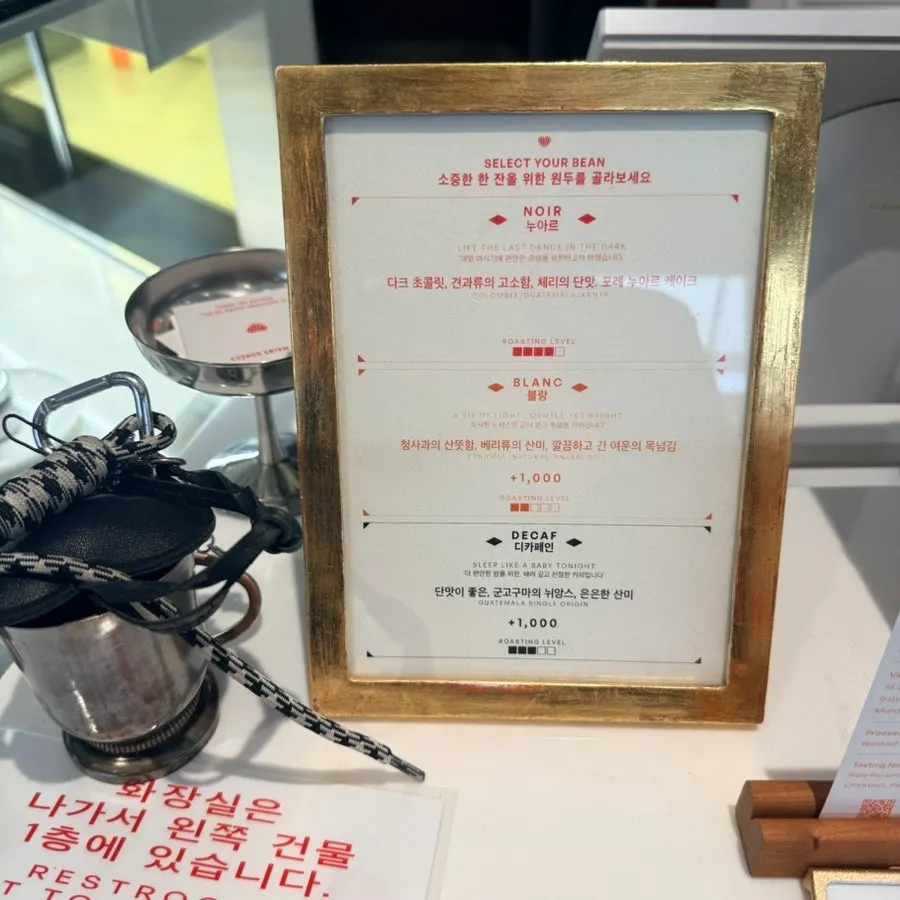 SELECT YOUR BEAN
소중한 한 잔을 위한 원두를 골라보세요
NOIR
누아르
LIKE THE LAST DANCE IN THE DARK
다크 초콜릿, 견과류의 고소함, 체리의 단맛, 포레 누아르 케이크
COLOMBIA/GUATEMALA/KENYA
ROASTING LEVEL
BLANC
블랑
A SIP OF LIGHT, GENTLE YET BRIGHT
청사과의 산뜻함, 베리류의 산미, 깔끔하고 긴 여운의 목넘김
+1,000
ROASTING LEVEL
DECAF
디카페인
SLEEP LIKE A BABY TONIGHT
단맛이 좋은, 군고구마의 뉘앙스, 은은한 산미
GUATEMALA SINGLE ORIGIN
+1,000
ROASTING LEVEL
화장실은
나가서 왼쪽 건물
1층에 있습니다.
Washed
Tasting